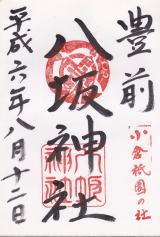 豊前
八坂神社
小倉祇園の社
平成六年八月十二日